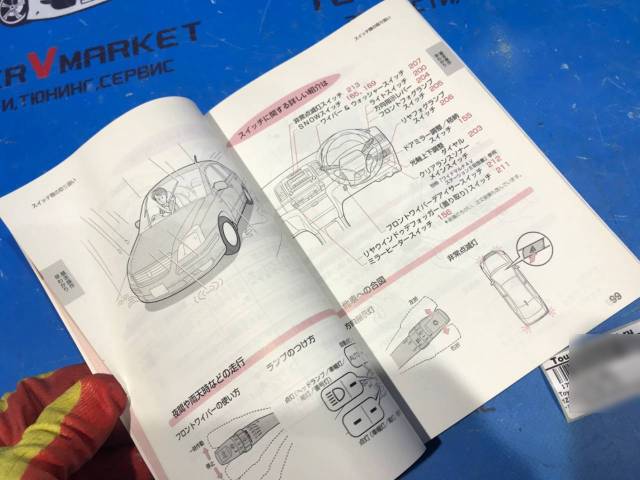 VMARKET
И,ТЮНИНГ,СЕРВИС
スイッチ類の取り扱い
夜間や雨天時などの走行
フロントワイパーの使い方
一時作動
停止
ランプのつけ方
スイッチ類の取り扱い
スイッチに関する詳しい紹介は
非常点滅灯スイッチ 213
SNOWスイッチ 165, 169
ワイパー & ウォッシャースイッチ 207
ライトスイッチ 200
方向指示レバー 204
フロントフォグランプ
スイッチ 205
リヤフォグランプ
スイッチ 206
ドアミラー調整/格納
スイッチ 155
光軸上下調整
ダイヤル 203
クリアランスソナー
メインスイッチ
フロントワイパーデアイサースイッチ 212
リヤウインドゥデフォッガー(曇り取り)スイッチ 211
ミラーヒータースイッチ 156
他車への合図
方向指示灯
左折
右折
非常点滅灯
99